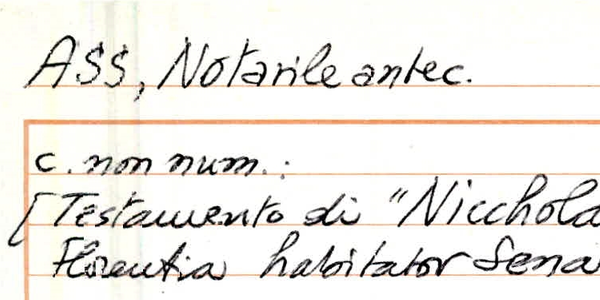 ASS, Notarile antec.
c. non num.:
[Testamento di "Nicchola
Florentia habitator Sena